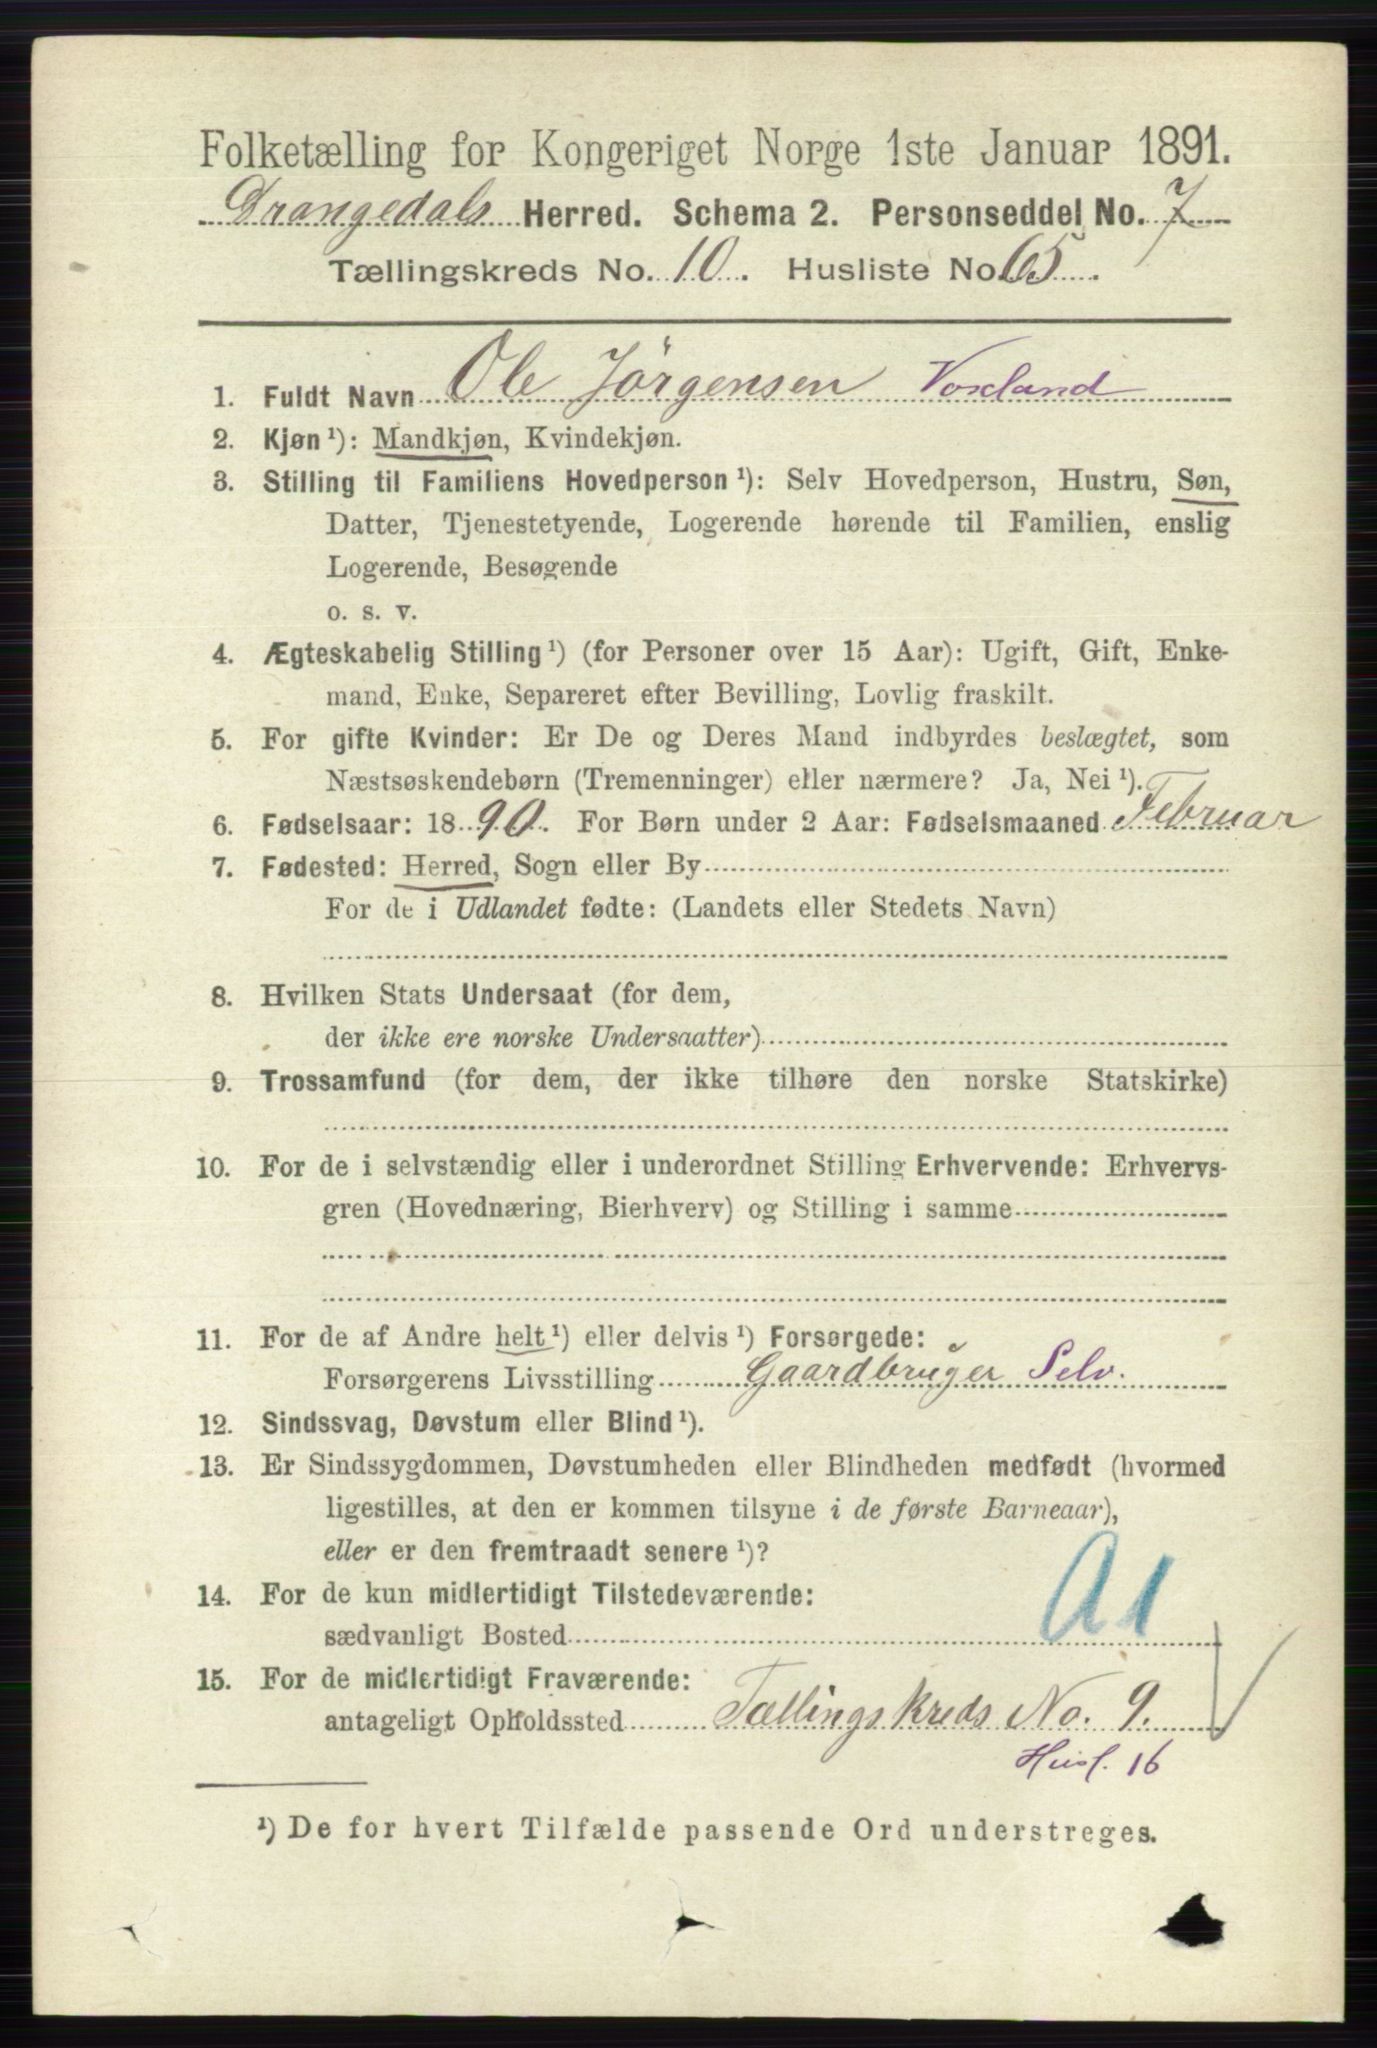 Folketælling for Kongeriget Norge 1ste Januar 1891.
Drangedals Herred. Schema 2. Personseddel No. 7
Tællingskreds No. 10. Husliste No. 65.
1. Fuldt Navn Ole Jørgensen Voxland
2. Kjøn ¹): Mandkjøn, Kvindekjøn.
3. Stilling til Familiens Hovedperson ¹): Selv Hovedperson, Hustru, Søn,
Datter, Tjenestetyende, Logerende hørende til Familien, enslig
Logerende, Besøgende
o. s. v.
4. Ægteskabelig Stilling ¹) (for Personer over 15 Aar): Ugift, Gift, Enke-
mand, Enke, Separeret efter Bevilling, Lovlig fraskilt.
5. For gifte Kvinder: Er De og Deres Mand indbyrdes beslægtet, som
Næstsøskendebørn (Tremenninger) eller nærmere? Ja, Nei ¹).
6. Fødselsaar: 1890. For Børn under 2 Aar: Fødselsmaaned Februar
7. Fødested: Herred, Sogn eller By
For de i Udlandet fødte: (Landets eller Stedets Navn)
8. Hvilken Stats Undersaat (for dem,
der ikke ere norske Undersaatter)
9. Trossamfund (for dem, der ikke tilhøre den norske Statskirke)
10. For de i selvstændig eller i underordnet Stilling Erhvervende: Erhvervs-
gren (Hovednæring, Bierhverv) og Stilling i samme
11. For de af Andre helt ¹) eller delvis ¹) Forsørgede:
Forsørgerens Livsstilling Gaardbruger Selv.
12. Sindssvag, Døvstum eller Blind ¹).
13. Er Sindssygdommen, Døvstumheden eller Blindheden medfødt (hvormed
ligestilles, at den er kommen tilsyne i de første Barneaar),
eller er den fremtraadt senere ¹)?
14. For de kun midlertidigt Tilstedeværende:
sædvanligt Bosted
A1
15. For de midlertidigt Fraværende:
antageligt Opholdssted Tællingskreds No. 9.
Husl. 16
¹) De for hvert Tilfælde passende Ord understreges.